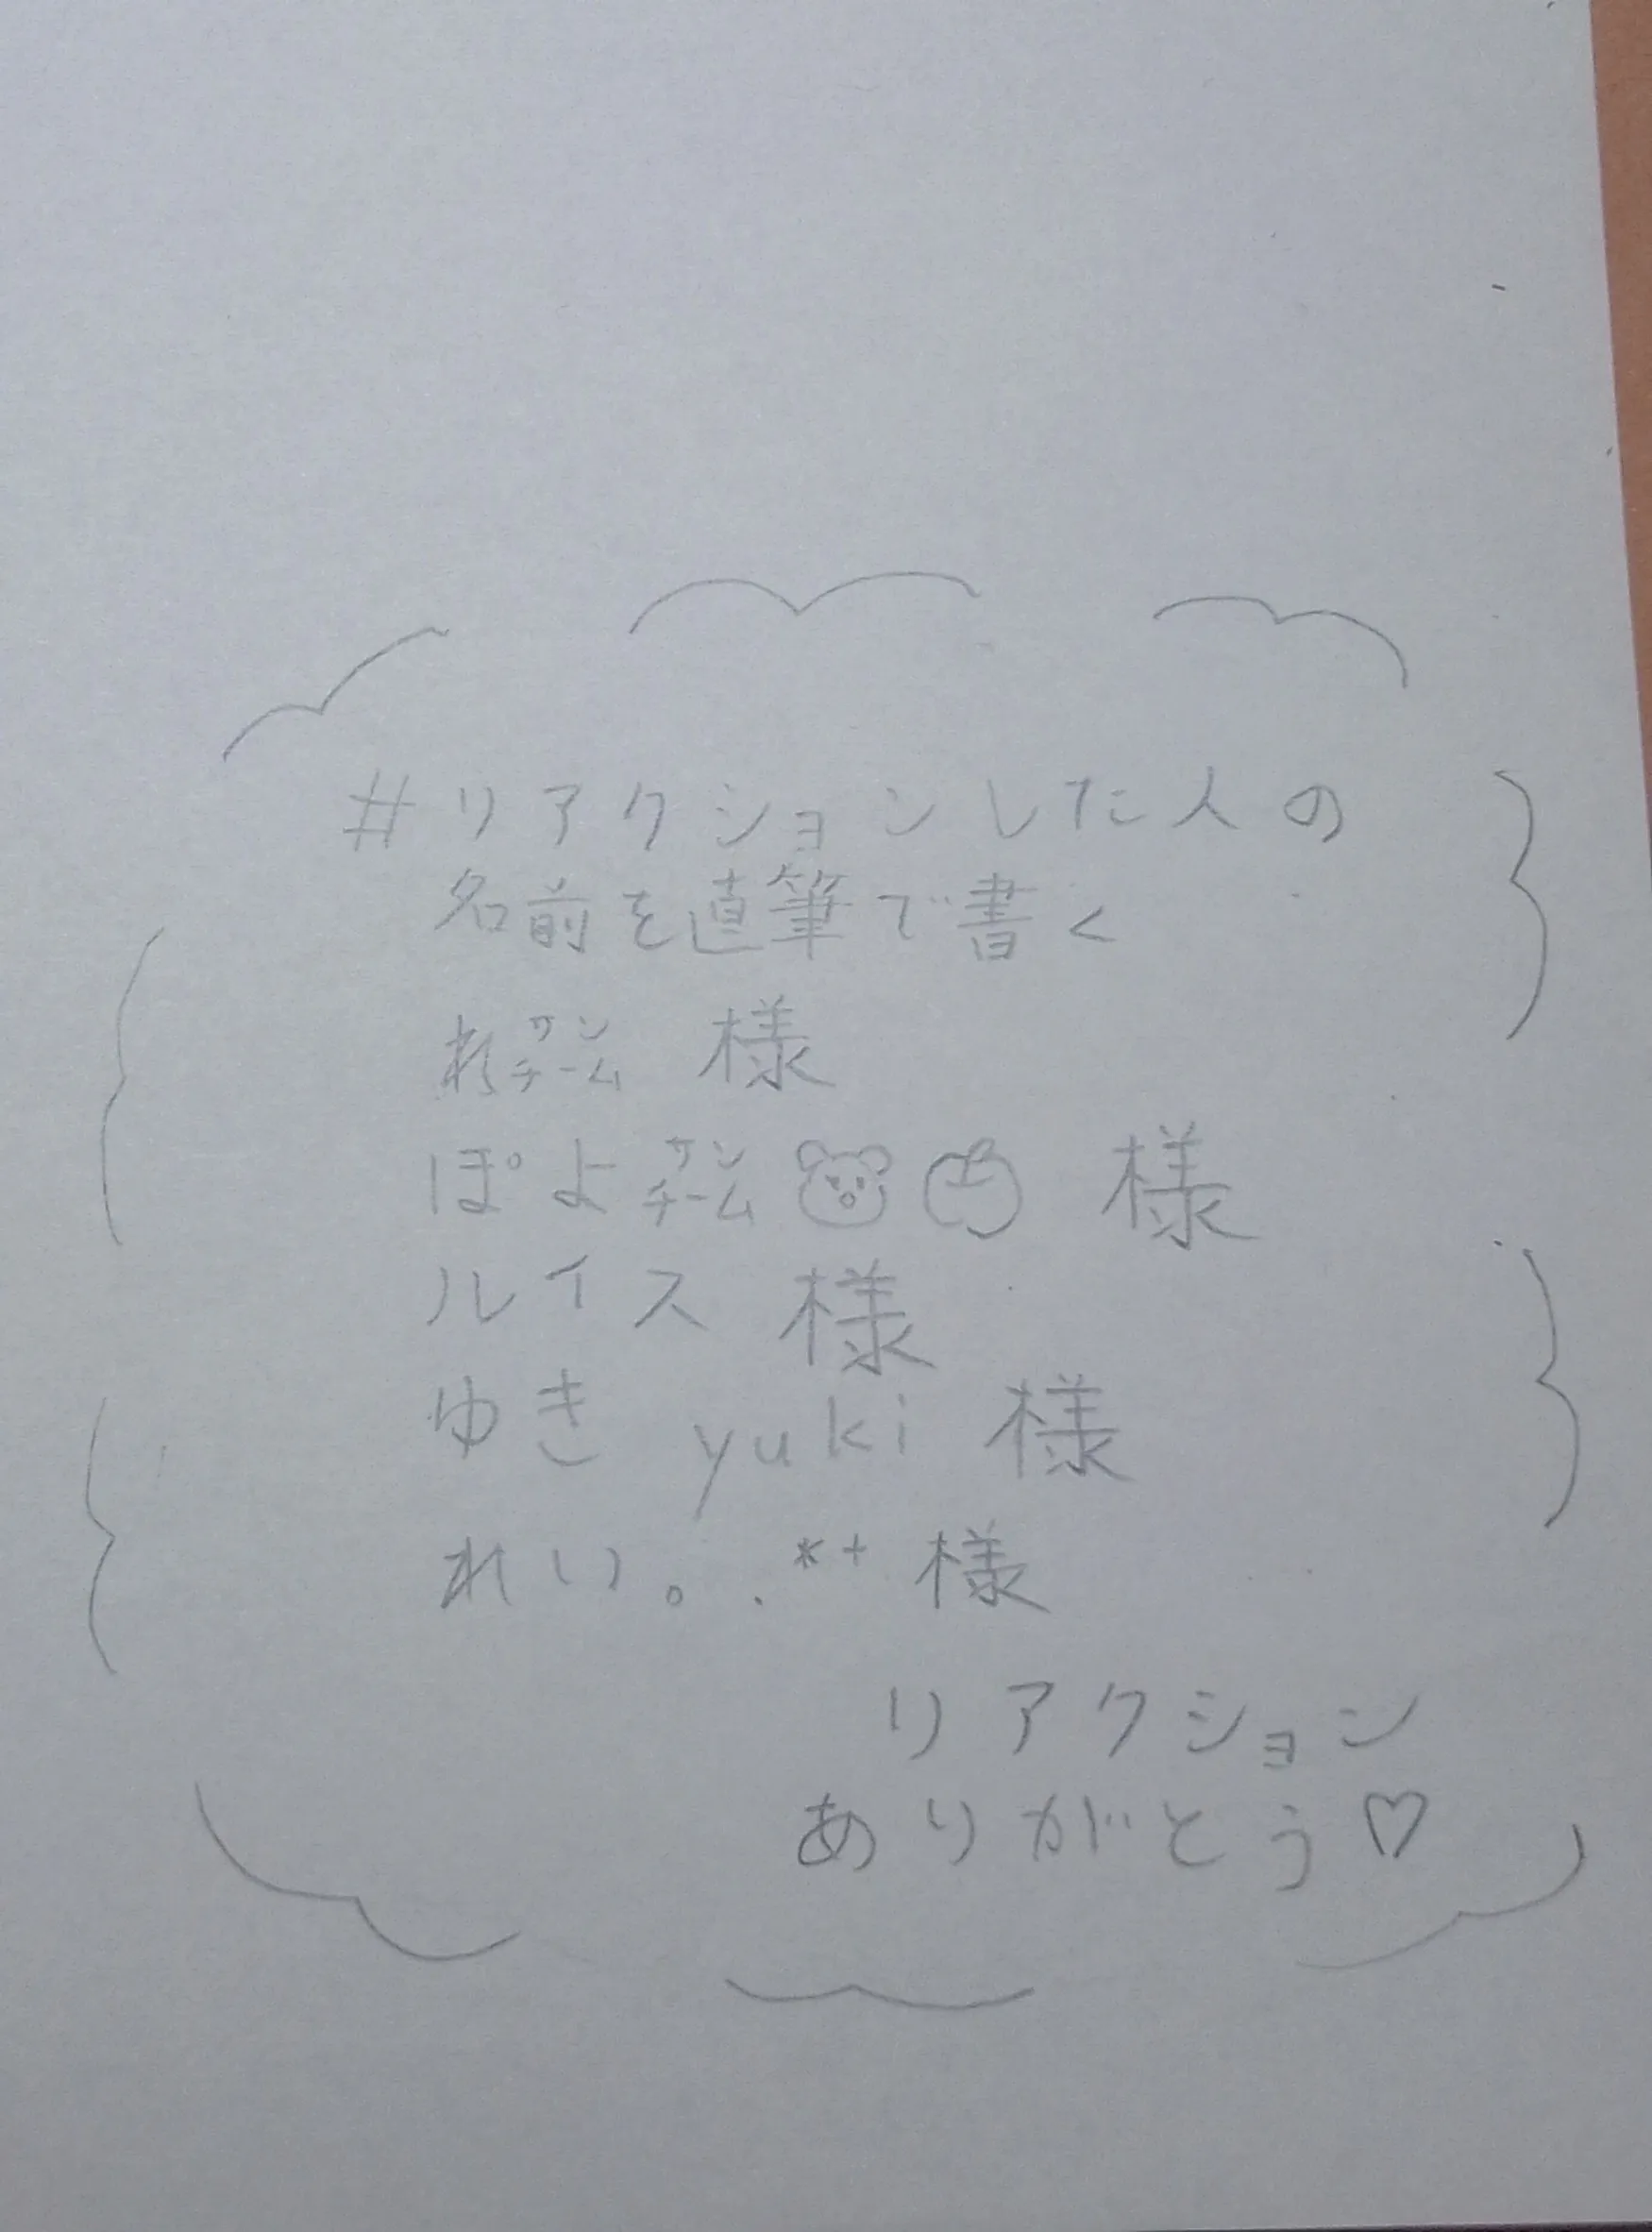 #リアクションした人の
名前を直筆で書く
れサンチーム 様
ぽよサンチーム🐻🍎 様
ルイス 様
ゆき yuki 様
れい。.*+ 様
リアクション
ありがとう♡